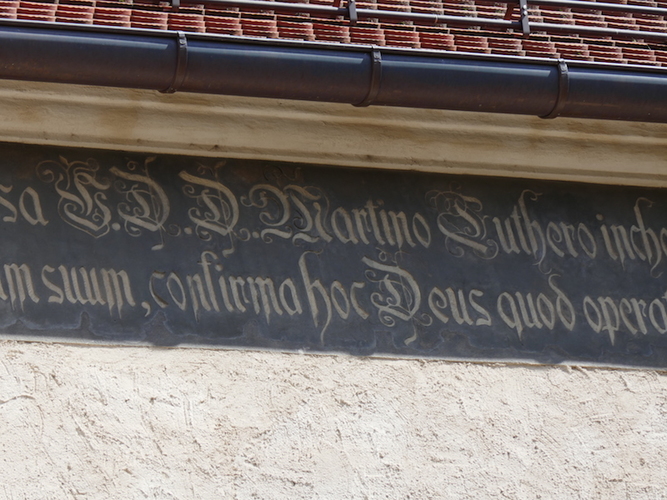 sa E.D.D. Martino Luthero inch
um suum, confirma hoc Deus quod opera